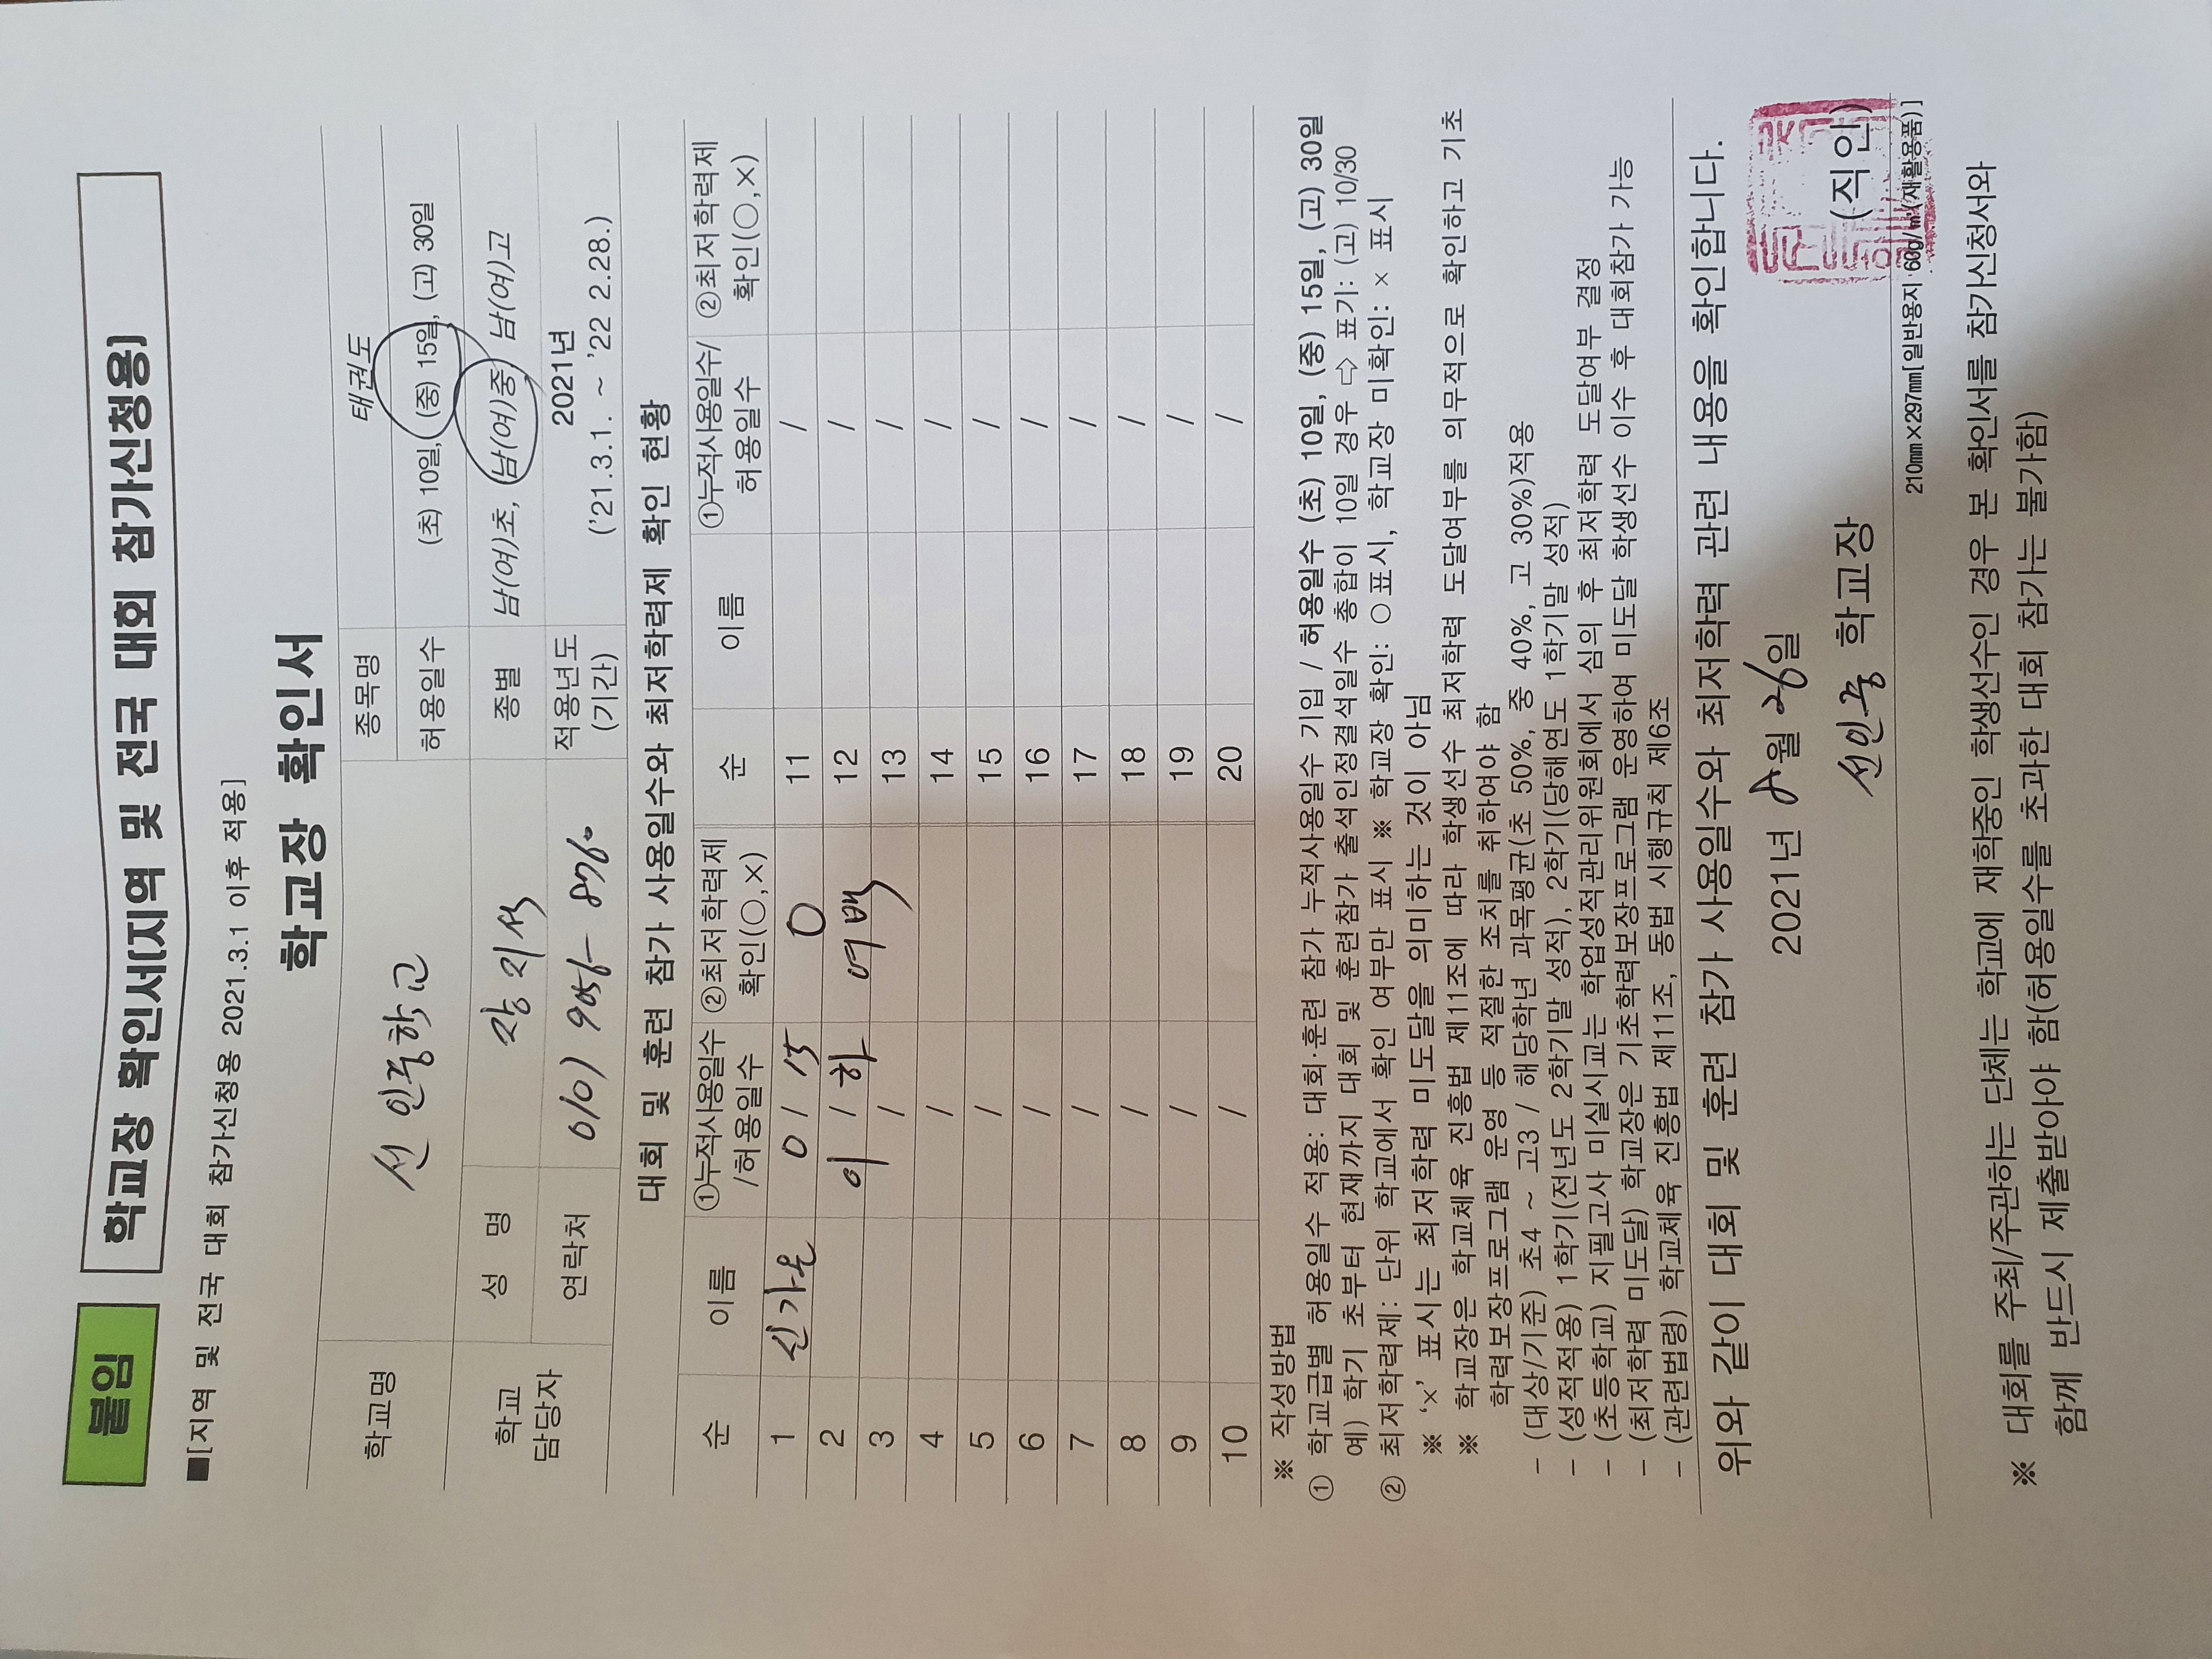 붙임
학교장 확인서[지역 및 전국 대회 참가신청용]
■[지역 및 전국 대회 참가신청용 2021.3.1 이후 적용]
학교장 확인서
학교명 선인중학교 종목명 태권도
허용일수 (초) 10일, (중) 15일, (고) 30일
학교 담당자 성 명 장지석 종별 남(여)초, 남(여)중 남(여)고
연락처 010) 9056- 8760 적용년도 (기간) 2021년
('21.3.1. ~ '22 2.28.)
대회 및 훈련 참가 사용일수와 최저학력제 확인 현황
순 이름 ①누적사용일수 /허용일수 ②최저학력제 확인(○,×) 순 이름 ①누적사용일수/ 허용일수 ②최저학력제 확인(○,×)
1 신가온 0 / 15 O 11 /
2 이 / 하 여백 12 /
3 / 13 /
4 / 14 /
5 / 15 /
6 / 16 /
7 / 17 /
8 / 18 /
9 / 19 /
10 / 20 /
※ 작성방법
① 학교급별 허용일수 적용: 대회·훈련 참가 누적사용일수 기입 / 허용일수 (초) 10일, (중) 15일, (고) 30일
예) 학기 초부터 현재까지 대회 및 훈련참가 출석인정결석일수 총합이 10일 경우 ⇨ 표기: (고) 10/30
② 최저학력제: 단위 학교에서 확인 여부만 표시 ※ 학교장 확인: ○표시, 학교장 미확인: × 표시
※ '×' 표시는 최저학력 미도달을 의미하는 것이 아님
※ 학교장은 학교체육 진흥법 제11조에 따라 학생선수 최저학력 도달여부를 의무적으로 확인하고 기초
학력보장프로그램 운영 등 적절한 조치를 취하여야 함
- (대상/기준) 초4 ~ 고3 / 해당학년 과목평균(초 50%, 중 40%, 고 30%)적용
- (성적적용) 1학기(전년도 2학기말 성적), 2학기(당해연도 1학기말 성적)
- (초등학교) 지필고사 미실시교는 학업성적관리위원회에서 심의 후 최저학력 도달여부 결정
- (최저학력 미도달) 학교장은 기초학력보장프로그램 운영하여 미도달 학생선수 이수 후 대회참가 가능
- (관련법령) 학교체육 진흥법 제11조, 동법 시행규칙 제6조
위와 같이 대회 및 훈련 참가 사용일수와 최저학력 관련 내용을 확인합니다.
2021년 8월 26일
선인중 학교장 (직인)
210㎜×297㎜[일반용지 60g/㎡(재활용품)]
※ 대회를 주최/주관하는 단체는 학교에 재학중인 학생선수인 경우 본 확인서를 참가신청서와
함께 반드시 제출받아야 함(허용일수를 초과한 대회 참가는 불가함)